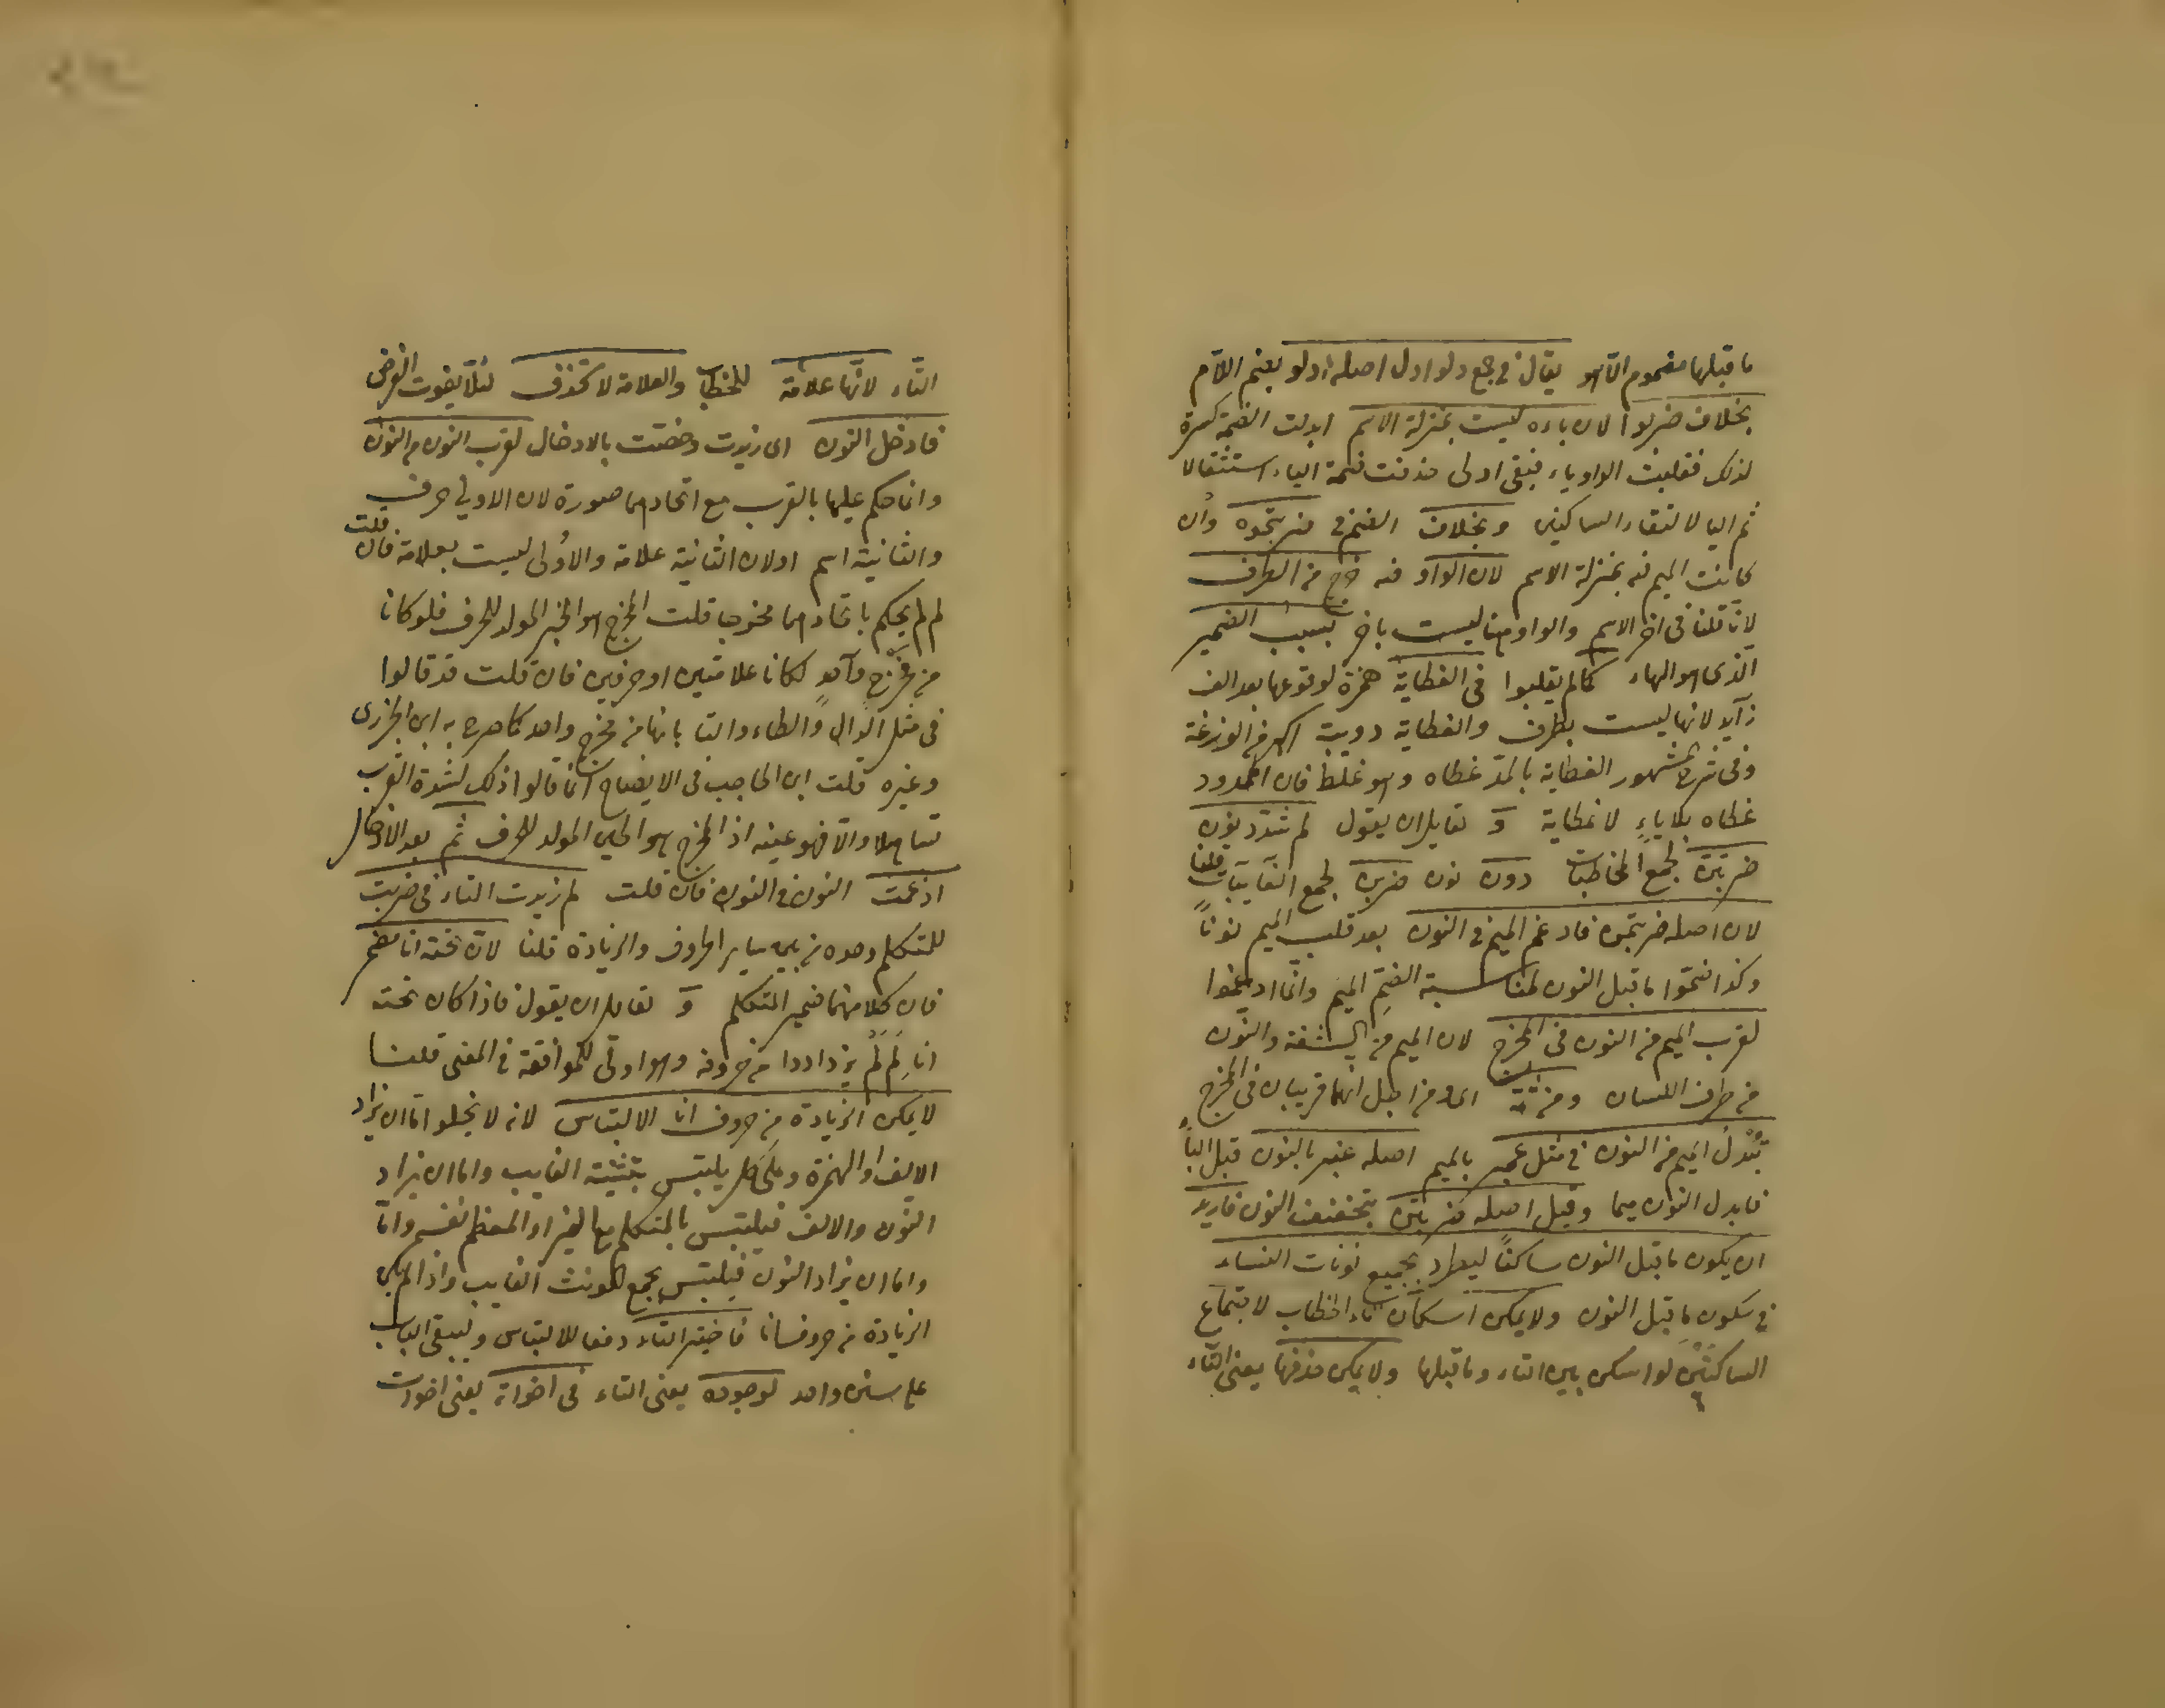 ما قبلها مضموم الا هو يقال في جمع دلو ادل اصله ادلو بضم اللام
بخلاف ضربوا لان باءه ليست بمنزلة الاسم ابدلت الضمة كسرة
لذلك فقلبت الواو ياء فبقى ادلى حذفت ضمة الياء استثقالا
ثم اليا لالتقاء الساكنين وبخلاف الضم في ضربتموه وان
كانت الميم فيه بمنزلة الاسم لان الواو فيه خرج من الطرف
لانا قلنا في اخر الاسم والواو هنا ليست باخر بسبب الضمير
الذى هو الهاء كما لم يقلبوا في العظاية همزة لوقوعها بعد الف
زايد لانها ليست بطرف والعظاية دويبة اكبر من الوزغة
وفي شرح المشهور العظاية بالمد عظاه وهو غلط فان الممدود
عظاه بلا ياء لا عظاية و لقايل ان يقول لم شدد نون
ضربتن لجمع المخاطبات دون نون ضربن لجمع الغايبات قلنا
لان اصله ضربتمن فادغم الميم في النون بعد قلب الميم نونا
وكذا ضموا ما قبل النون لمناسبة الضم الميم وانما ادغموا
لقرب الميم من النون في المخرج لان الميم من الشفة والنون
من طرف اللسان ومن ثمة اى ومن اجل انهما قريبان في المخرج
تبدل الميم من النون في مثل عمبر بالميم اصله عنبر بالنون قبل الباء
فابدل النون ميما وقيل اصله ضربتن بتخفيف النون فاريد
ان يكون ما قبل النون ساكنا ليطرد بجميع نونات النساء
في سكون ما قبل النون ولا يمكن اسكان تاء الخطاب لاجتماع
الساكنين لو اسكن بين التاء وما قبلها ولا يمكن حذفها يعنى التاء
التاء لانها علامة للخطاب والعلامة لا تحذف لئلا يفوت الغرض
فادخل النون اى زيدت وخصت بالادخال لقرب النون من النون
وانما حكم عليهما بالقرب مع اتحادهما صورة لان الاولى حرف
والثانية اسم او لان الثانية علامة والاولى ليست بعلامة فان قلت
لم لم يحكم باتحادهما مخرجا قلت المخرج هو الحيز المولد للحرف فلو كانا
من مخرج واحد لكانا علامتين او حرفين فان قلت قد قالوا
في مثل الدال والطاء والتا بانها من مخرج واحد كما صرح به ابن الجزرى
وغيره قلت ابن الحاجب في الايضاح انما قالوا ذلك لشدة القرب
تساهلا والا فهو عينه اذ المخرج هو الحيز المولد للحرف ثم بعد الادخال
ادغمت النون في النون فان قلت لم زيدت التاء في ضربت
للمتكلم وحده من بين ساير الحروف والزيادة قلنا لان تحته انا مضمر
فان كلا منهما ضمير المتكلم و لقايل ان يقول فاذا كان تحته
انا لم لم يزداد من حروفه وهو اوفى للموافقة في المعنى قلنا
لا يمكن الزيادة من حروف انا الالتباس لانه لا يخلو اما ان يزاد
الالف او الهمزة وعلى كل يلتبس بتثنية الغايب واما ان يزاد
النون والالف فيلتبس بالمتكلم مع الغير او المعظم نفسه واما
واما ان يزاد النون فيلتبس بجمع المونث الغايب واذا لم يمكن
الزيادة من حروف انا فاختير التاء دفعا للالتباس وليبقى الباب
على سنن واحد لوجوده يعنى التاء في اخواته يعنى اخوات